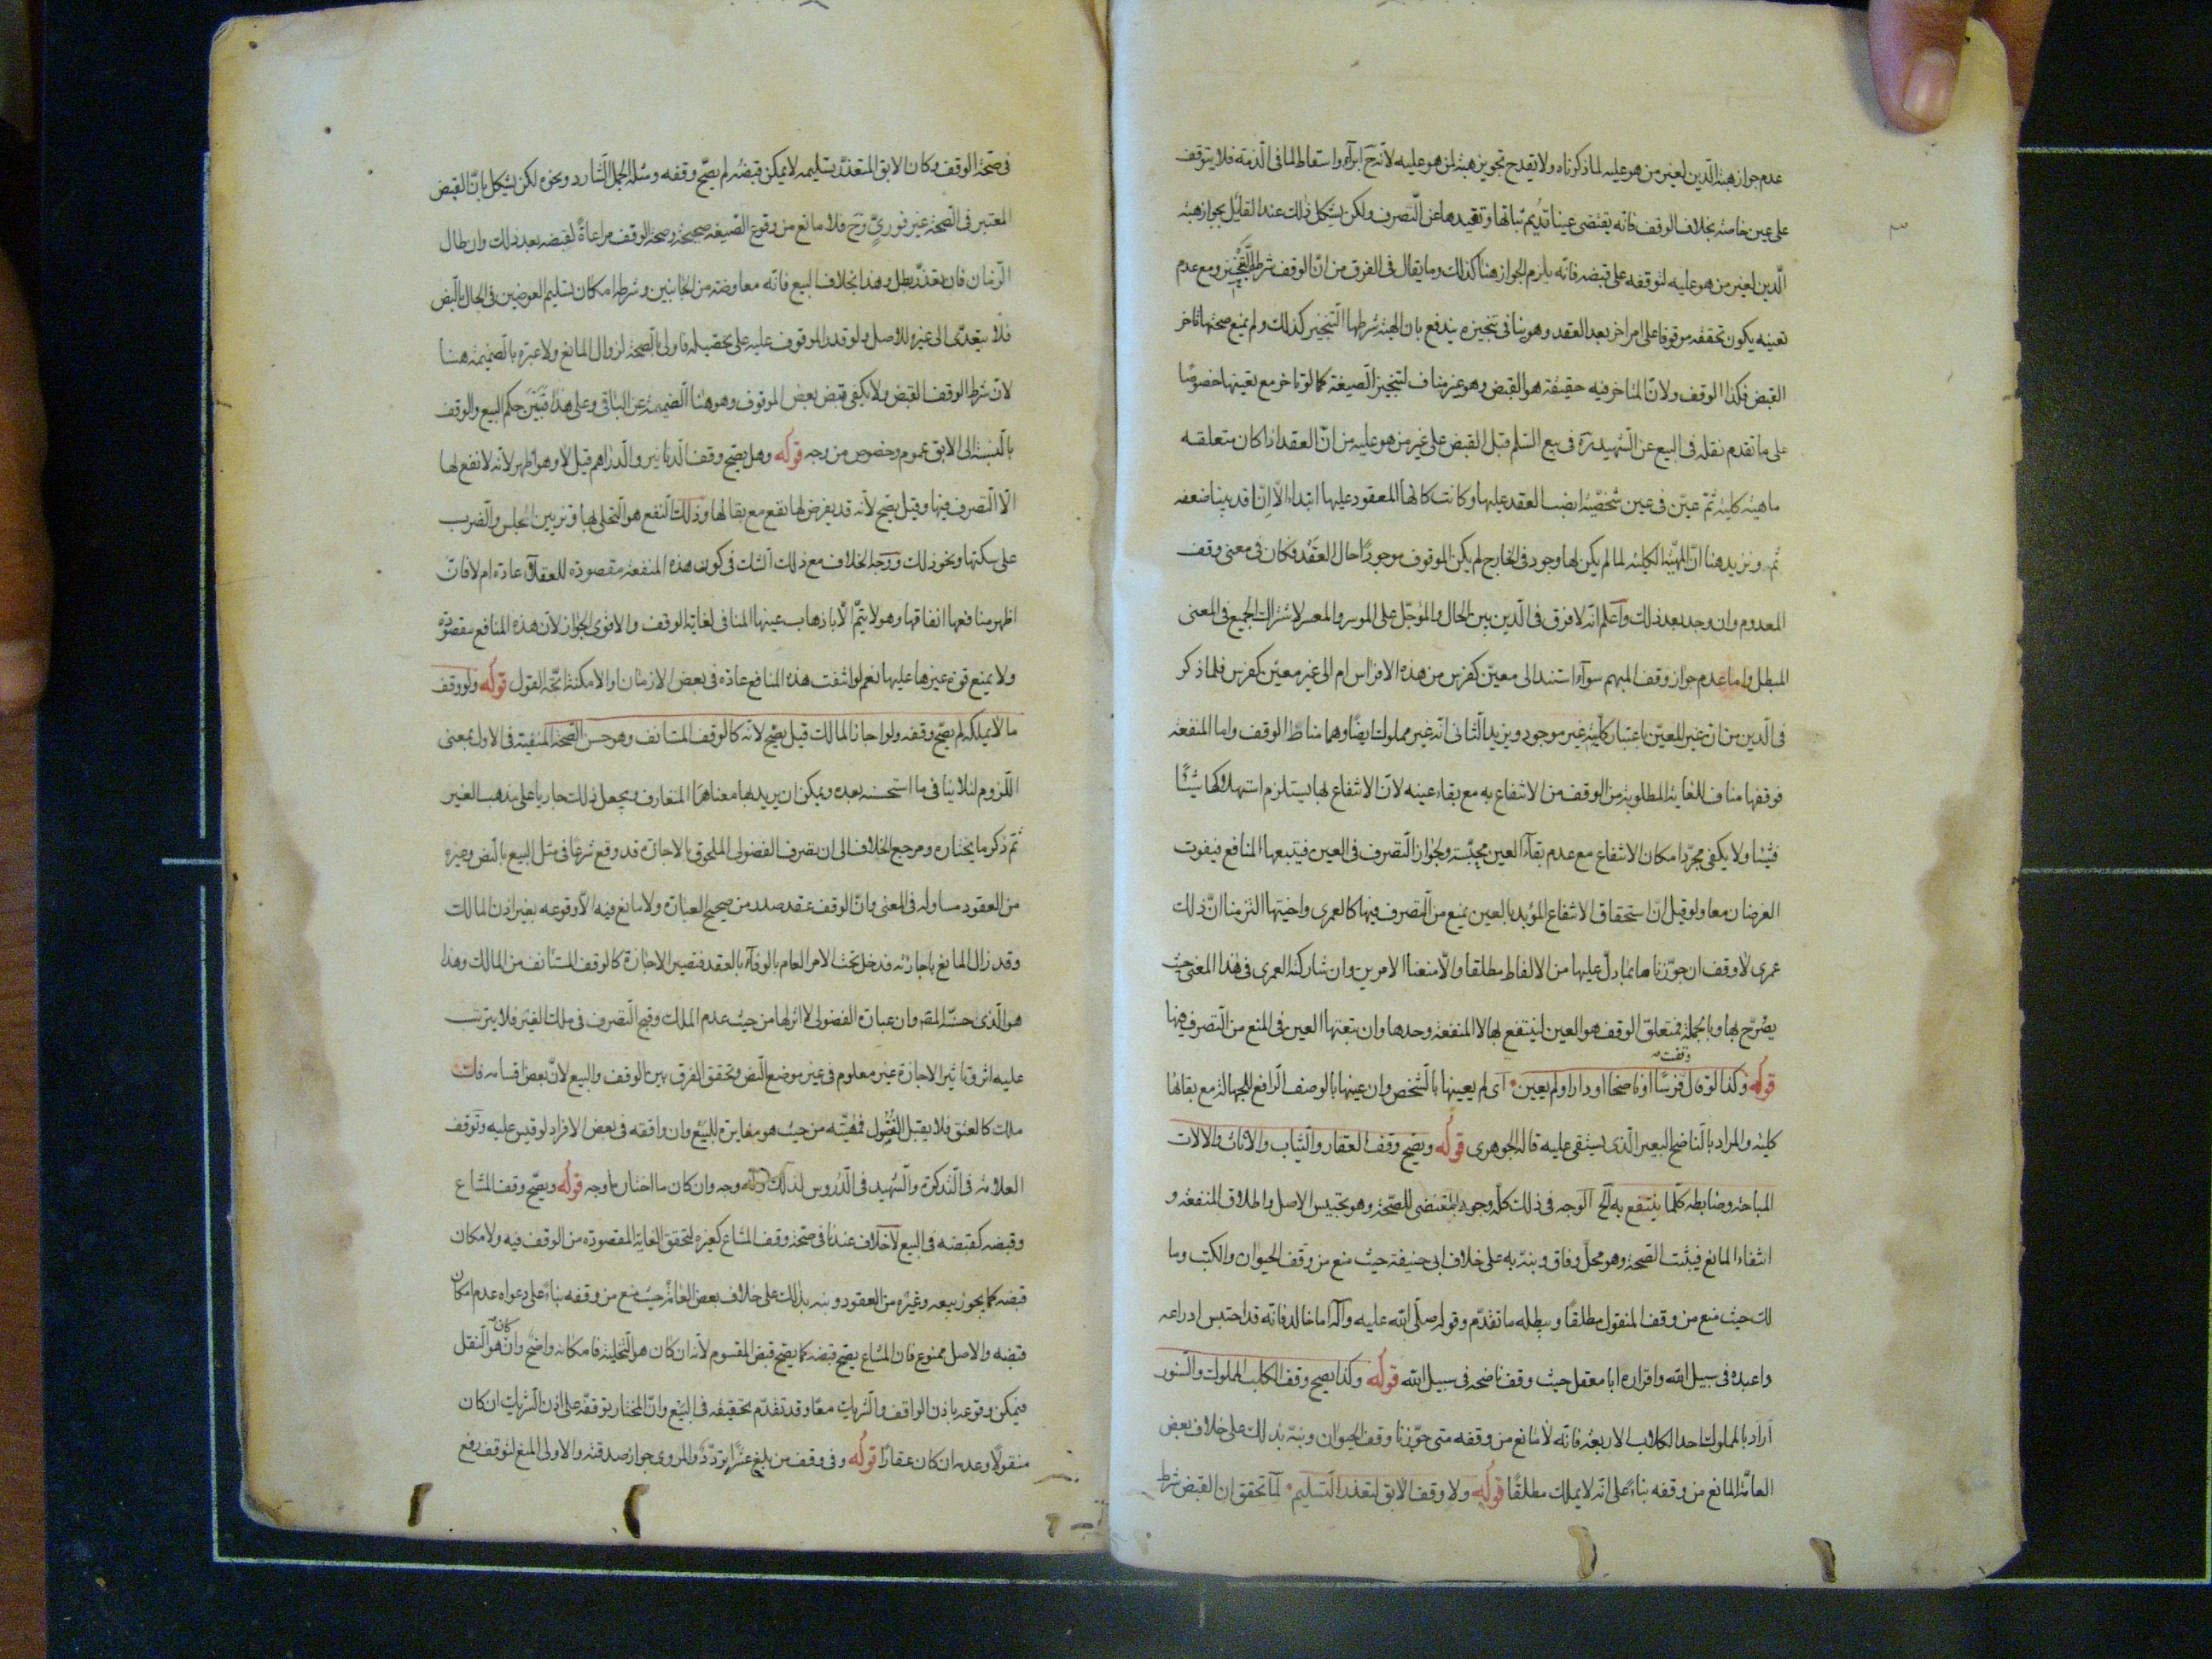 عدم جواز هبة الدين لغير من هو عليه لما ذكرناه ولا يقدح تجويز هبته لمن هو عليه لانه ح ابراء واسقاط لما فى الذمة فلا يتوقف
على عين خاصة بخلاف الوقف فانه يقتضى عينا تديم ثباتها وتقييدها عن التصرف ولكن يشكل ذلك عند القايل بجواز هبة
الدين لغير من هو عليه لتوقفه على قبضه فانه يلزم الجواز هنا كذلك وما يقال فى الفرق من ان الوقف شرطه التنجيز ومع عدم
تعينه يكون تحققه موقوفا على امر اخر بعد العقد وهو ينافى تنجيزه يندفع بان الهبة شرطها التنجيز كذلك ولم يمنع صحتها تاخر
القبض فكذا الوقف ولان المتاخر فيه حقيقة هو القبض وهو غير مناف لتنجيز الصيغة كما لو تاخر مع تعينها خصوصا
على ما تقدم نقله فى البيع عن الشهيد ره فى بيع السلم قبل القبض على غير من هو عليه من ان العقد اذا كان متعلقه
ماهية كلية ثم عين فى عين شخصية انصب العقد عليها وكانت كانها المعقود عليها ابتداء الا انا قد بينا ضعفه
ثم ونزيد هنا ان المهية الكلية لما لم يكن لها وجود فى الخارج لم يكن الموقوف موجودا حال العقد فكان فى معنى وقف
المعدوم وان وجد بعد ذلك واعلم انه لا فرق فى الدين بين الحال والموجل على الموسر والمعسر لاشتراك الجميع فى المعنى
المبطل واما عدم جواز وقف المبهم سواء استند الى معين كفرس من هذه الافراس ام الى غير معين كفرس فلما ذكر
فى الدين من ان غير المعين باعتبار كليته غير موجود ويزيد الثانى انه غير مملوك ايضا وهما مناط الوقف واما المنفعة
فوقفها مناف للغاية المطلوبة من الوقف من الانتفاع به مع بقاء عينه لان الانتفاع لها يستلزم استهلاكها شيئا
فشيئا ولا يكفى مجرد امكان الانتفاع مع عدم بقاء العين محبسة ولجواز التصرف فى العين فيتبعها المنافع فيفوت
الغرضان معا ولو قيل ان استحقاق الانتفاع المؤبد بالعين يمنع من التصرف فيها كالعمرى واختيها التزمنا ان ذلك
عمرى لا وقف ان جوزناها بما دل عليها من الالفاظ مطلقا والا منعنا الامرين وان شاركته العمرى فى هذا المعنى حيث
يصرح بها وبالجملة فمتعلق الوقف هو العين لينتفع بها لا المنفعة وحدها وان تبعتها العين فى المنع من التصرف فيها
قوله وكذا لو قال وقفت فرسا او ناضحا او دارا ولم يعين اى لم يعينها بالشخص وان عينها بالوصف الرافع للجهالة مع بقائها
كلية والمراد بالناضح البعير الذى يستقى عليه قاله الجوهرى قوله ويصح وقف العقار والثياب والاثاث والالات
المباحة وضابطه كلما ينتفع به الخ الوجه فى ذلك كله وجود المقتضى للصحة وهو تحبيس الاصل واطلاق المنفعة و
انتفاء المانع فيثبت الصحة وهو محل وفاق ونبه به على خلاف ابى حنيفة حيث منع من وقف الحيوان والكتب وما
لك حيث منع من وقف المنقول مطلقا ويبطله ما تقدم وقوله صلى الله عليه وآله اما خالد فانه قد احتبس ادراعه
واعبده فى سبيل الله واقراره ابا معقل حيث وقف ناضحه فى سبيل الله قوله وكذا يصح وقف الكلب المملوك والسنور
اراد بالمملوك احد الكلاب الاربعة فانه لا مانع من وقفه متى جوزنا وقف الحيوان ونبه بذلك على خلاف بعض
العامة المانع من وقفه بناء على انه لا يملك مطلقا قوله ولا وقف الابق لتعذر التسليم لما تحقق ان القبض شرط
فى صحة الوقف وكان الابق المتعذر تسليمه لا يمكن قبضه لم يصح وقفه ومثله الجمل الشارد ونحوه لكن يشكل بان القبض
المعتبر فى الصحة غير فورى وح فلا مانع من وقوع الصيغة صحيحة وصحة الوقف مراعاة لقبضه بعد ذلك وان طال
الزمان فان تعذر بطل وهذا بخلاف البيع فانه معاوضة من الجانبين وشرطه امكان تسليم العوضين فى الحال بالنص
فلا يتعدى الى غيره للاصل ولو قدر الموقوف عليه على تحصيله فاولى بالصحة لزوال المانع ولا عبرة بالضميمة هنا
لان شرط الوقف القبض ولا يكفى قبض بعض الموقوف وهو هنا الضميمة عن الباقى وعلى هذا فبين حكم البيع والوقف
بالنسبة الى الابق عموم وخصوص من وجه قوله وهل يصح وقف الدنانير والدراهم قيل لا وهو اظهر لانه لا نفع لها
الا التصرف فيها وقيل يصح لانه قد يفرض لها نفع مع بقائها وذلك النفع هو التحلى بها وتزيين المجلس والضرب
على سكتها ونحو ذلك ووجه الخلاف مع ذلك الشك فى كون هذه المنفعة مقصودة للعقلاء عادة ام لا فان
اظهر منافعها انفاقها وهو لا يتم الا باذهاب عينها المنافى لغاية الوقف والاقوى الجواز لان هذه المنافع مقصودة
ولا يمنع قوة غيرها عليها نعم لو انتفت هذه المنافع عادة فى بعض الازمان والامكنة اتجه القول قوله ولو وقف
ما لا يملكه لم يصح وقفه ولو اجاز المالك قيل يصح لانه كالوقف المستانف وهو حسن الصحة المنفية فى الاول بمعنى
اللزوم لئلا ينافى ما استحسنه بعده ويمكن ان يريد بها معناها المتعارف ويجعل ذلك جاريا على مذهب الغير
ثم ذكر ما يختاره ومرجع الخلاف الى ان تصرف الفضولى الملحوق بالاجازة قد وقع شرعا فى مثل البيع بالنص وغيره
من العقود مساو له فى المعنى وان الوقف عقد صدر من صحيح العبارة ولا مانع فيه الا وقوعه بغير اذن المالك
وقد زال المانع باجازته فدخل تحت الامر العام بالوفاء بالعقد فتصير الاجازة كالوقف المستانف من المالك وهذا
هو الذى حسنه المصه وان عبارة الفضولى لا اثر لها من حيث عدم الملك وقبح التصرف فى ملك الغير فلا يترتب
عليه اثر وتاثير الاجازة غير معلوم فى غير موضع النص وتحقق الفرق بين الوقف والبيع لان بعض اقسامه فك
ملك كالعتق فلا يقبل الفضول فمهيته من حيث هو مغايرة للبيع وان وافقه فى بعض الافراد لو قيس عليه وتوقف
العلامة فى التذكرة والشهيد فى الدروس لذلك وله وجه وان كان ما اختاره اوجه قوله ويصح وقف المشاع
وقبضه كقبضه فى البيع لا خلاف عندنا فى صحة وقف المشاع كغيره لتحقق الغاية المقصودة من الوقف فيه ولامكان
قبضه كما يجوز بيعه وغيره من العقود ونبه بذلك على خلاف بعض العامة حيث منع من وقفه بناء على دعواه عدم امكان
قبضه والاصل ممنوع فان المشاع يصح قبضه كما يصح قبض المقسوم لانه ان كان هو التخلية فامكانه واضح وان كان هو النقل
فيمكن وقوعه باذن الواقف والشريك معا وقد تقدم تحقيقه فى البيع وان المختار توقفه على اذن الشريك ان كان
منقولا وعدمه ان كان عقارا قوله وفى وقف من بلغ عشرا تردد والمروى جواز صدقته والاولى المنع لتوقف رفع